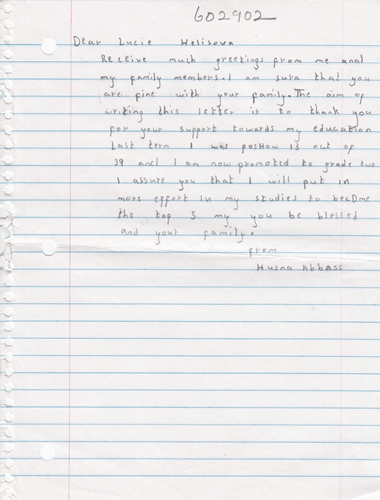 602902
Dear Lucie Welisova
Receive much greetings from me and
my family members. I am sura that you
are fine with your family. The aim of
writing this letter is to thank you
for your support towards my education
last term I was position 13 out of
39 and I am now promoted to grade two
I assure you that I will put in
more effort in my studies to become
the top 5 my you be blessed
and your family.
from
Husna Abbass